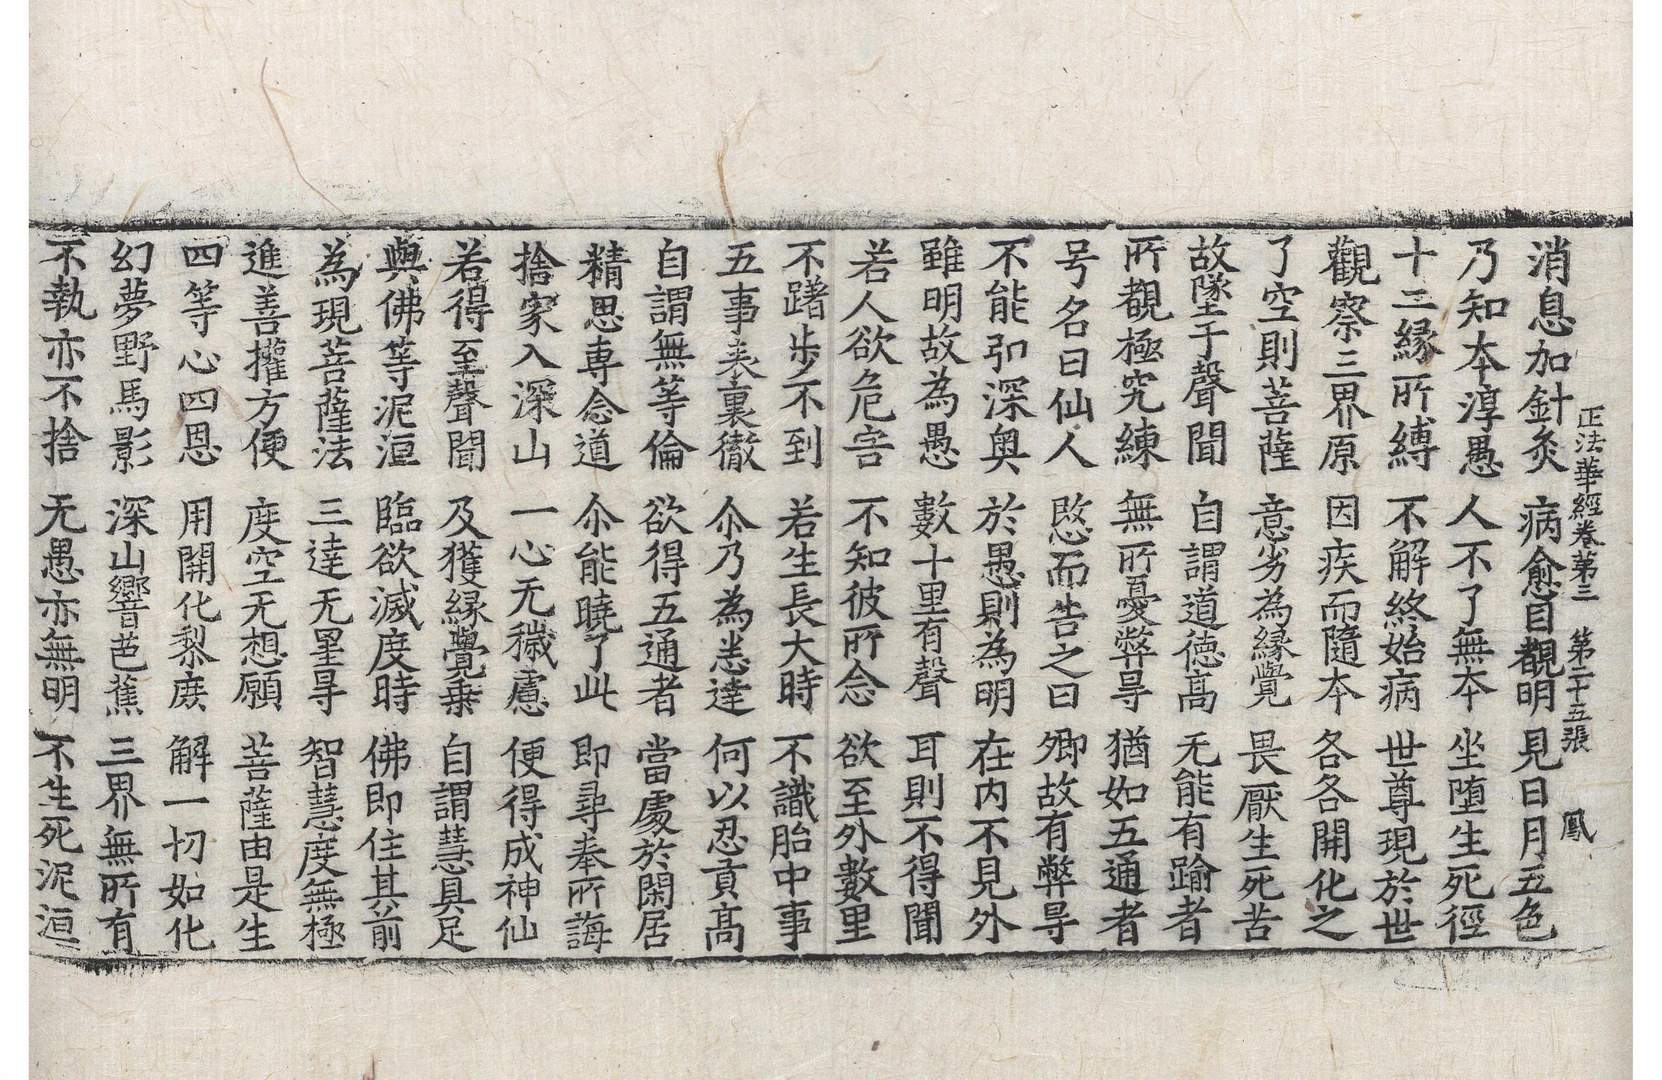 正法華經卷第三 第二十五張 鳳
消息加針灸 病愈目覩明 見日月五色
乃知本淳愚 人不了無本 坐墮生死徑
十二緣所縛 不解終始病 世尊現於世
觀察三界原 因疾而隨本 各各開化之
了空則菩薩 意劣為緣覺 畏厭生死苦
故墜于聲聞 自謂道德高 无能有踰者
所覩極究練 無所憂弊㝵 猶如五通者
号名曰仙人 愍而告之曰 卿故有弊㝵
不能卬深奥 於愚則為明 在内不見外
雖明故為愚 數十里有聲 耳則不得聞
若人欲危害 不知彼所念 欲至外數里
不躇步不到 若生長大時 不識胎中事
五事表裏徹 尒乃為恙達 何以忍貢髙
自謂無等倫 欲得五通者 當處於閑居
精思專念道 尒能曉了此 即尋奉所誨
捨家入深山 一心无穢慮 便得成神仙
若得至聲聞 及獲緣覺乗 自謂慧具足
與佛等泥洹 臨欲滅度時 佛即住其前
為現菩薩法 三達无罣㝵 智慧度無極
進善權方便 度空无想願 菩薩由是生
四等心四恩 用開化黎庶 解一切如化
幻夢野馬影 深山響芭蕉 三界無所有
不執亦不捨 无愚亦無明 不生死泥洹